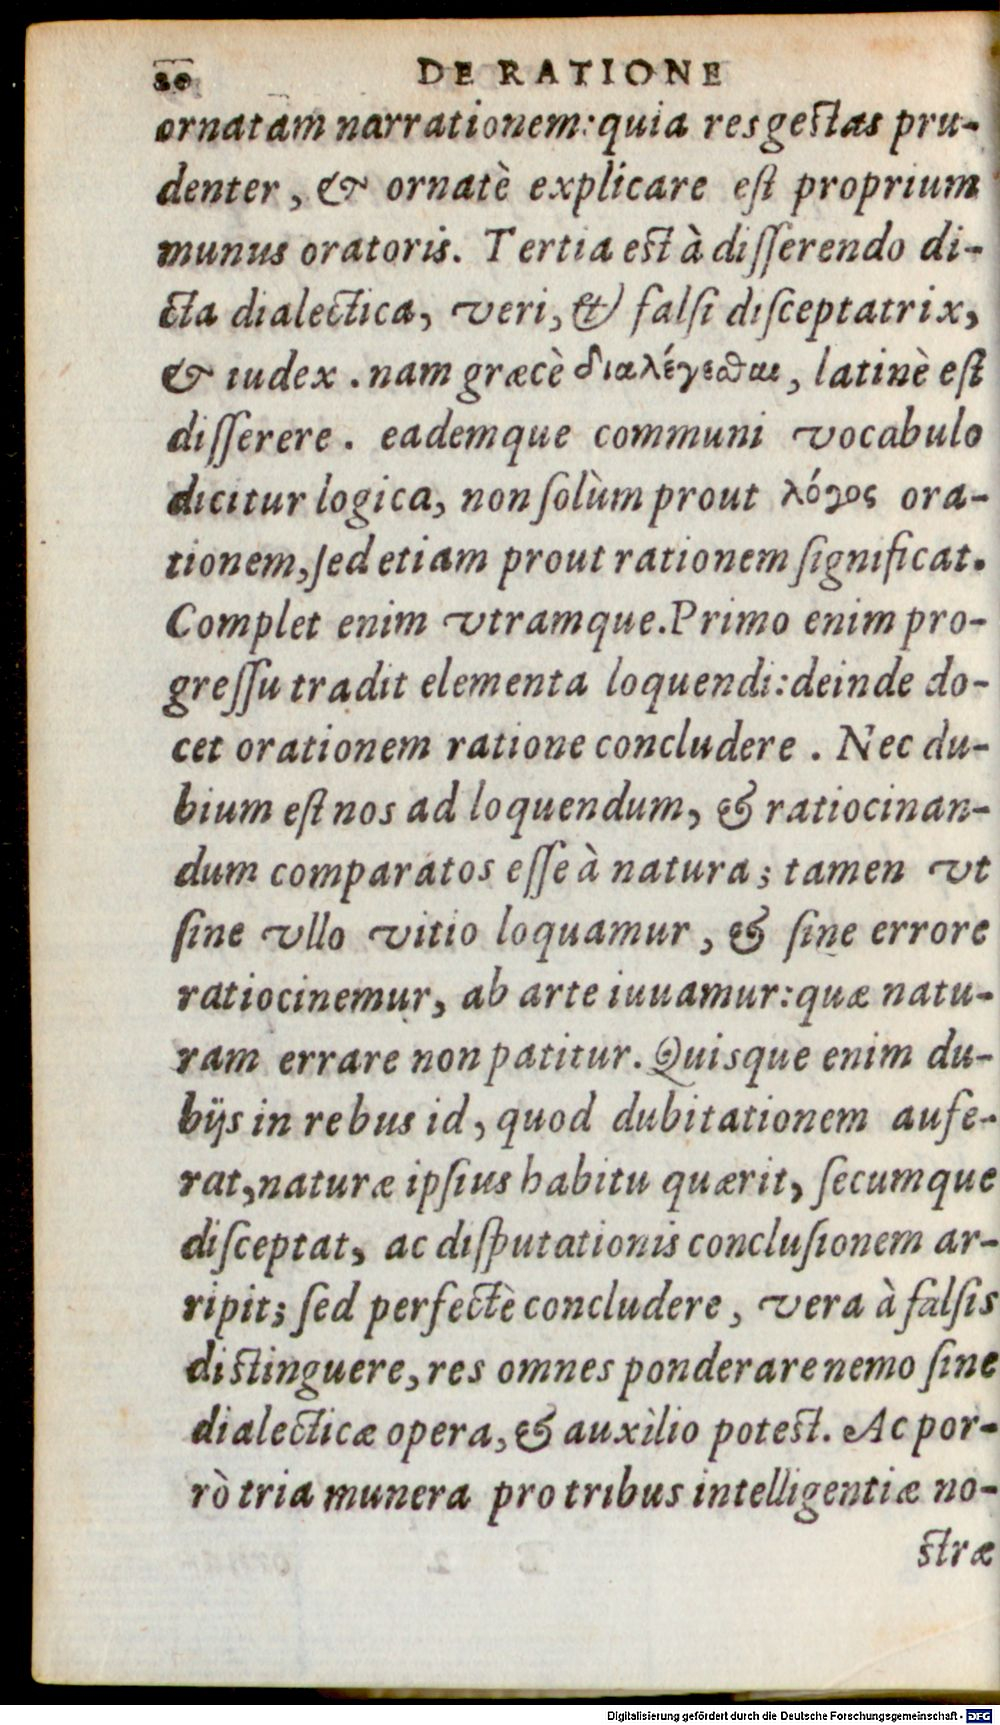 20 DE RATIONE
ornatam narrationem: quia res gestas pru-
denter, & ornatè explicare est proprium
munus oratoris. Tertia est à disserendo di-
cta dialectica, veri, & falsi disceptatrix,
& iudex. nam græcè διαλέγεσθαι, latinè est
disserere. eademque communi vocabulo
dicitur logica, non solùm prout λόγος ora-
tionem, sed etiam prout rationem significat.
Complet enim vtramque. Primo enim pro-
gressu tradit elementa loquendi: deinde do-
cet orationem ratione concludere. Nec du-
bium est nos ad loquendum, & ratiocinan-
dum comparatos esse à natura; tamen vt
sine vllo vitio loquamur, & sine errore
ratiocinemur, ab arte iuuamur: quæ natu-
ram errare non patitur. Quisque enim du-
bijs in rebus id, quod dubitationem aufe-
rat, naturæ ipsius habitu quærit, secumque
disceptat, ac disputationis conclusionem ar-
ripit; sed perfectè concludere, vera à falsis
distinguere, res omnes ponderare nemo sine
dialecticæ opera, & auxilio potest. Ac por-
rò tria munera pro tribus intelligentiæ no-
stræ
Digitalisierung gefördert durch die Deutsche Forschungsgemeinschaft - DFG